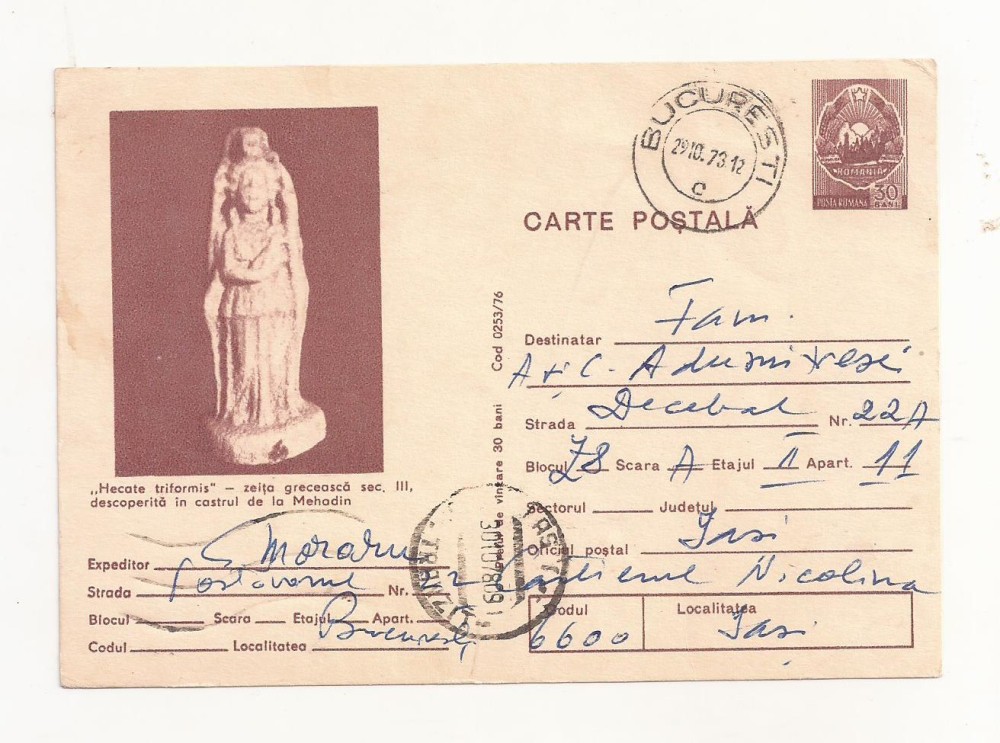 BUCURESTI
29.10.73.12
C
ROMANIA
POSTA ROMANA
30
BANI
CARTE POȘTALĂ
Cod 0253/76
de vînzare 30 bani
„Hecate triformis" – zeița grecească sec. III,
descoperită în castrul de la Mehadin
Destinatar Fam.
A și C.
Strada Decebal Nr. 22A
Blocul Z8 Scara A Etajul II Apart. 11
Sectorul Județul Iași
Oficiul poștal
Cartierul Nicolina
Codul 6600
Localitatea Iași
Expeditor Moraru
Strada Postăvarul Nr.
Blocul Scara Etajul Apart.
Codul Localitatea București